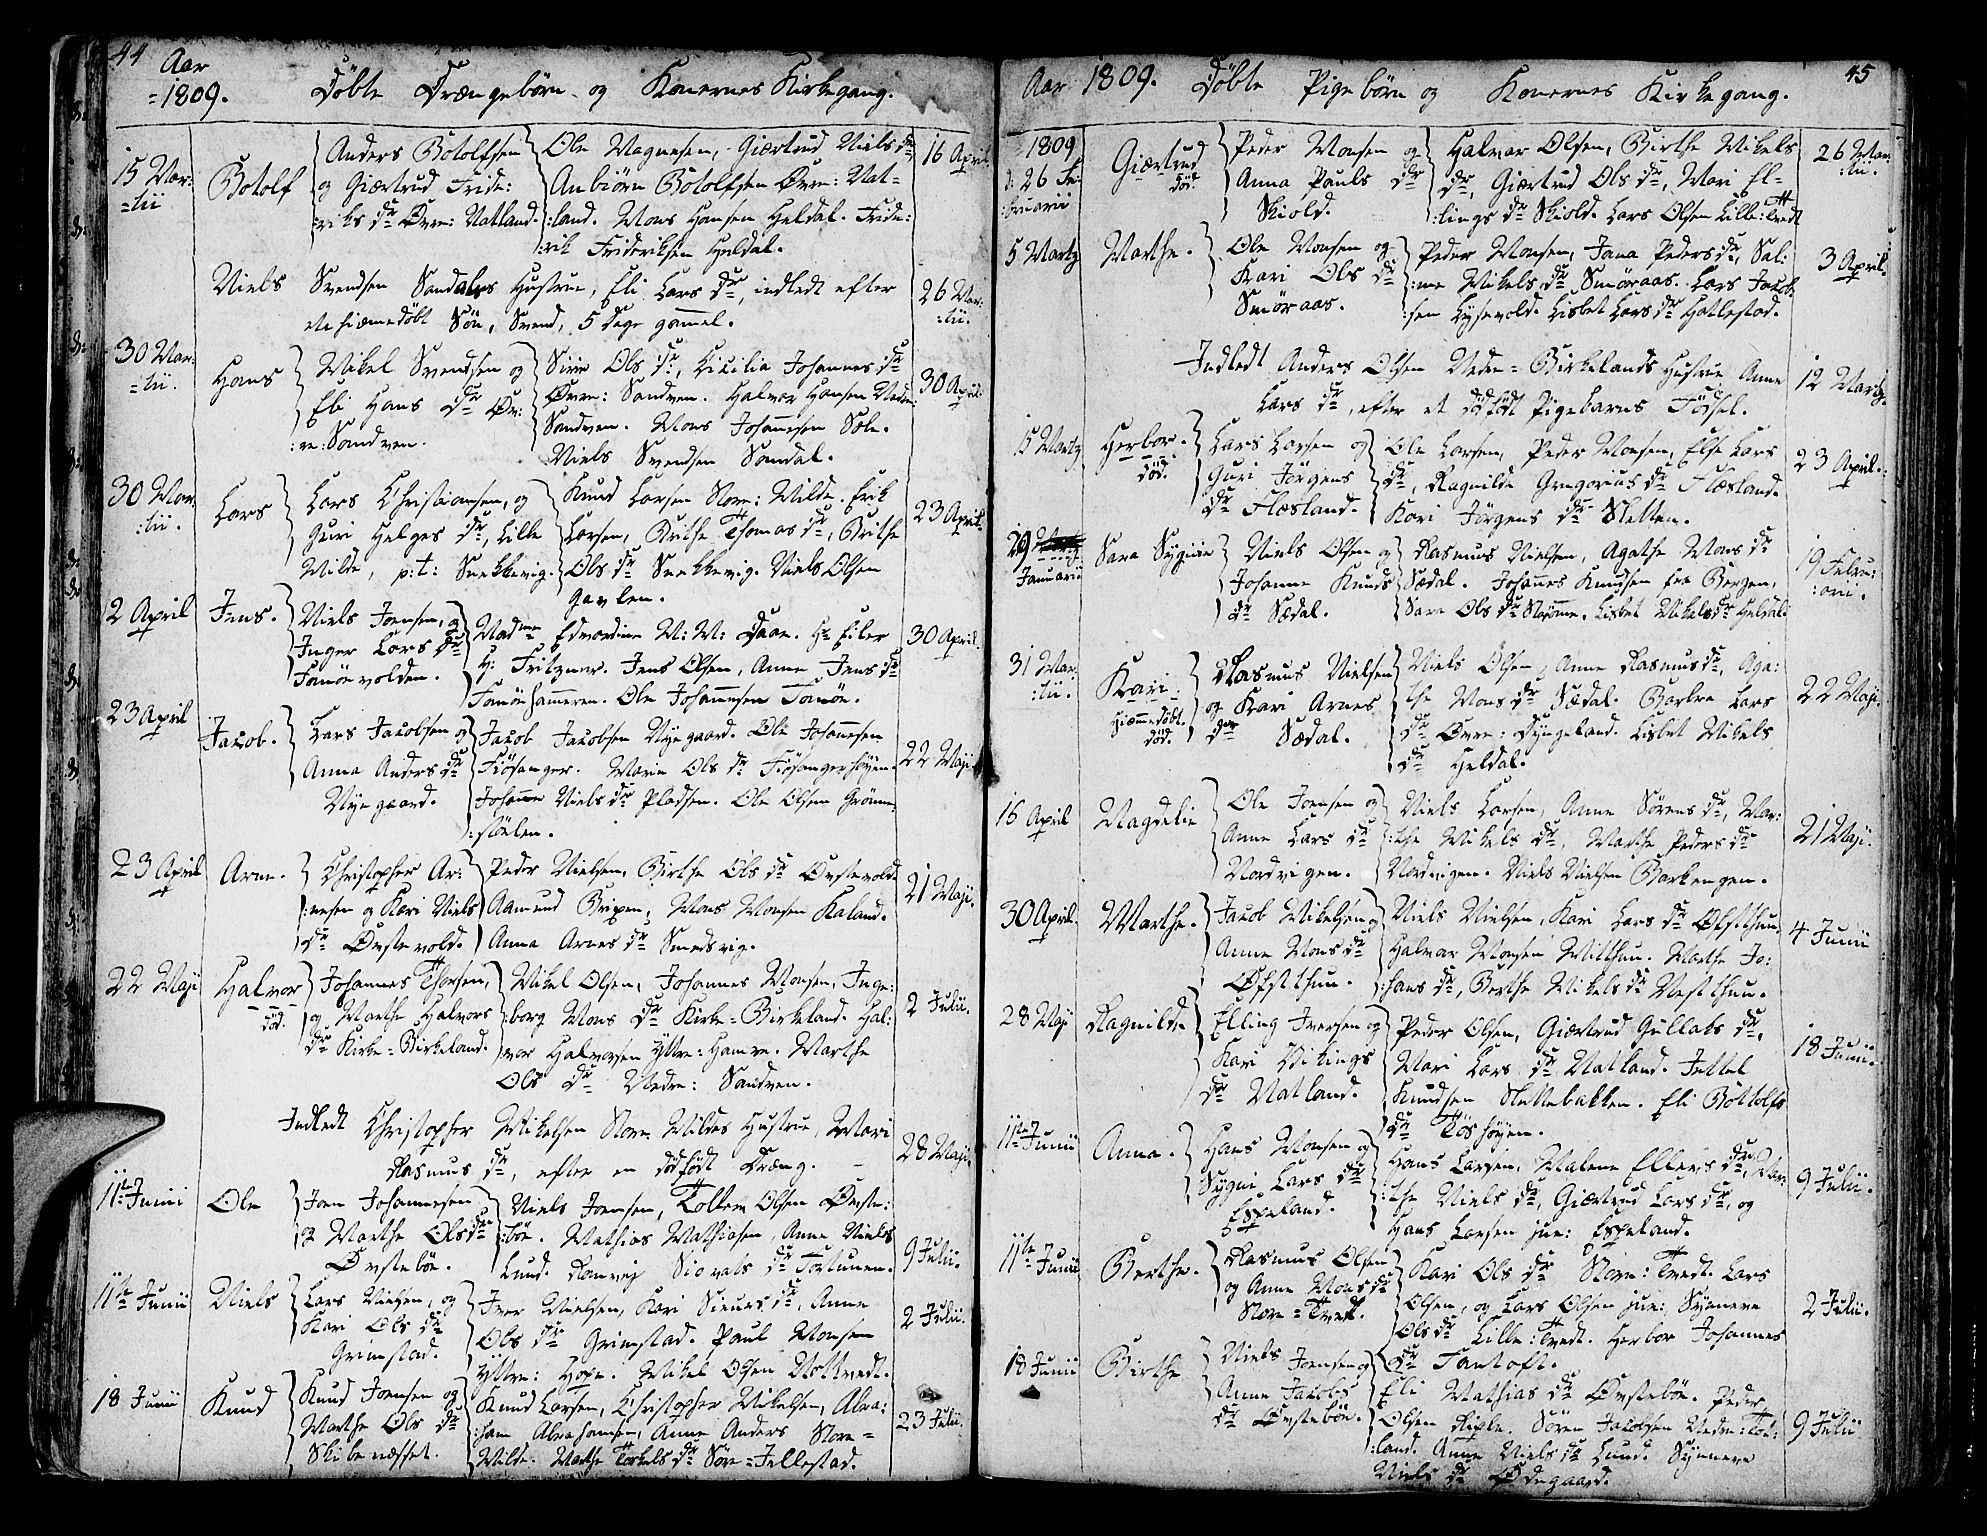 44
Aar
=1809. Döbte Drængebörn og Konernes Kirkegang.
15 Mar-
=tii
Botolf
Anders Botolfsen
og Giærtrud Fride:
:riks dr Øvre: Natland.
Ole Magnesen, Giærtrud Niels dr
Anbiörn Botolfsen Øvre: Nat-
:land. Mons Hansen Heldal. Fride:
:rik Frideriksen Heldal.
16 April.
Niels Svendsen Sandals Hustrue, Eli Lars dr, indledt efter
et hiemedöbt Sön, Svend, 5 Dage gammel.
26 Mar:
:tii.
30 Mar:
=tii.
Hans
Mikel Svendsen og
Eli Hans dr Øv:
:re: Sandven.
Siri Ols dr, Cicilia Johannes dr
Øvre: Sandven. Halvor Hansen Neder
Sandven. Mons Johannesen Sæle.
Niels Svendsen Sandal.
30 April.
30 Mar:
:tii.
Lars
Lars Christiansen, og
Guri Helges dr, Lille
Milde, p:t: Snekkevig.
Knud Larsen Store: Milde. Erik
Larsen, Brithe Thomas dr, Brithe
Ols dr Snekkevig. Niels Olsen
Gavlen.
23 April.
2 April
Jens.
Niels Joensen, og
Inger Lars dr
Tamöevolden.
Madme Edvardine M: M: Daae. Hr Eiler
H: Fritzner. Jens Olsen, Anne Jens dr
Tamöehammeren. Ole Johannesen Tamöe.
30 April.
23 April
Jacob.
Lars Jacobsen og
Anna Anders dr
Nyegaard.
Jacob Jacobsen Nyegaard. Ole Johannesen
Fiösanger. Marie Ols dr Fiösangerhöyen.
Johanne Niels dr Pladsen. Ole Olsen Grönne:
:stöelen.
22 Maji.
23 April
Arne.
Christopher Ar:
:nesen og Kari Niels
dr Øvstevold.
Peder Nielsen, Birthe Ols dr Øvstevold
Aamund Bripen, Mons Monsen Kaland.
Anna Arnes dr Smedsvig.
21 Maji.
22 Maji
Halvor
död.
Johannes Thorsen,
og Marthe Halvors
dr Kirke=Birkeland.
Mikel Olsen, Johannes Monsen, Inge:
:borg Mons dr Kirke=Birkeland. Hal:
vor Halvorsen Yttre: Hamre. Marthe
Ols dr Nedre: Sandven.
2 Julii.
Indledt Christopher Mikelsen Store Mildes Hustrue, Mari
Rasmus dr, efter en dödfödt Dræng.
28 Maji.
11te Junii
Ole
Joen Johannesen
& Marthe Ols dr
Øvsteböe.
Niels Joensen, Tollev Olsen Øvste:
:böe. Mathias Mathiasen, Anne Niels
Lund. Ranvej Siovats dr Tortunen.
9 Julii.
11te Junii
Niels
Lars Nielsen, og
Kari Ols dr
Grimstad.
Iver Nielsen, Kari Siurs dr, Anne
Ols dr Grimstad. Paul Monsen
Yttre: Hope. Mikel Olsen Nottvedt.
2 Julii.
18 Junii
Knud
Knud Joensen og
Marthe Ols dr
Skibenæsset.
Knud Larsen, Christopher Mikelsen, Abra:
:ham Abrahamsen, Anne Anders Store=
Milde. Marthe Torkels dr Söre=Jellestad.
23 Julii.
45
Aar 1809. Döbte Pigebörn og Konernes Kirkegang.
=1809
d: 26 Fe:
:bruarii
Giærtrud
död.
Peder Monsen og
Anna Pauls dr
Skiold.
Halvor Olsen, Birthe Mikels
dr, Giærtrud Ols dr, Mari El-
:lings dr Skiold. Lars Olsen Lille:Tvedt
26 Mar-
:tii.
5 Martz
Marthe.
Ole Monsen og
Kari Ols dr
Smöraas.
Peder Monsen, Jana Peders dr, Sal:
:me Mikels dr Smöraas. Lars Jacob:
:sen Lysevold. Lisbet Lars dr Hatlestad.
3 April.
Indledt Anders Olsen Nedre=Birkelands Hustrue Anne
Lars dr, efter et dödfödt Pigebarns Födsel.
12 Martz.
15 Martz
Herbor.
död.
Lars Larsen og
Guri Jörgens
dr Flæsland.
Ole Larsen, Peder Monsen, Else Lars
dr, Ragnilde Gregorius dr Flæsland.
Kari Jörgens dr Sletten.
23 April.
29
Januarii
Sara Sygnie
Niels Olsen og
Johanne Knuds
dr Sædal.
Rasmus Nielsen, Agathe Mons dr
Sædal. Johannes Knudsen fra Bergen,
Sara Ols dr Strömme. Lisbet Mikels dr Heldal
19 Febru:
:arii.
31 Mar:
:tii.
Kari.
hiemmedöbt.
död.
Rasmus Nielsen
og Kari Arnes
dr Sædal.
Niels Olsen, Anne Rasmus dr, Aga:
the Mons dr Sædal. Barbra Lars
dr Øvre: Dyngeland. Lisbet Mikels
dr Heldal.
22 Maji.
16 April
Magdelie
Ole Joensen og
Anne Lars dr
Nordvigen.
Niels Larsen, Anne Sörens dr, Mar:
:the Mikels dr, Marthe Peders dr
Nordvigen. Niels Nielsen Barkengen.
21 Maji.
30 April.
Marthe.
Jacob Mikelsen og
Anne Mons dr
Øfstthun.
Niels Nielsen, Kari Lars dr Øfstthun
Halvor Monsen Mitthun. Marthe Jo:
:hans dr, Berthe Mikels dr Vestthun.
4 Junii
28 Maji
Ragnilde
Elling Iversen og
Kari Vikings
dr Natland.
Peder Olsen, Giærtrud Gullaks dr,
Mari Lars dr Natland. Jettel
Knudsen Slettebakken. Eli Bottolfs
dr Töshöyen.
18 Junii.
11te Junii
Anna.
Hans Monsen og
Sygni Lars dr
Espeland.
Hans Larsen, Malene Ellers dr, Mar:
:the Niels dr, Giærtrud Lars dr, og
Hans Larsen jun: Espeland.
9 Julii.
11te Junii
Berthe.
Rasmus Olsen
og Anne Mons dr
Store=Tvedt.
Kari Ols dr Store: Tvedt. Lars
Olsen, og Lars Olsen jun: Synneve
Ols dr Lille: Tvedt. Herbor Johannes
dr Tantoft.
2 Julii.
18 Junii
Birthe
Niels Joensen og
Anne Jacobs
dr Øvsteböe.
Eli Mathias dr Øvsteböe. Peder
Olsen Riple. Sören Jacobsen Nedre: Tot:
:land. Anne Niels dr Lund. Synneve
Niels dr Ødegaard.
9 Julii